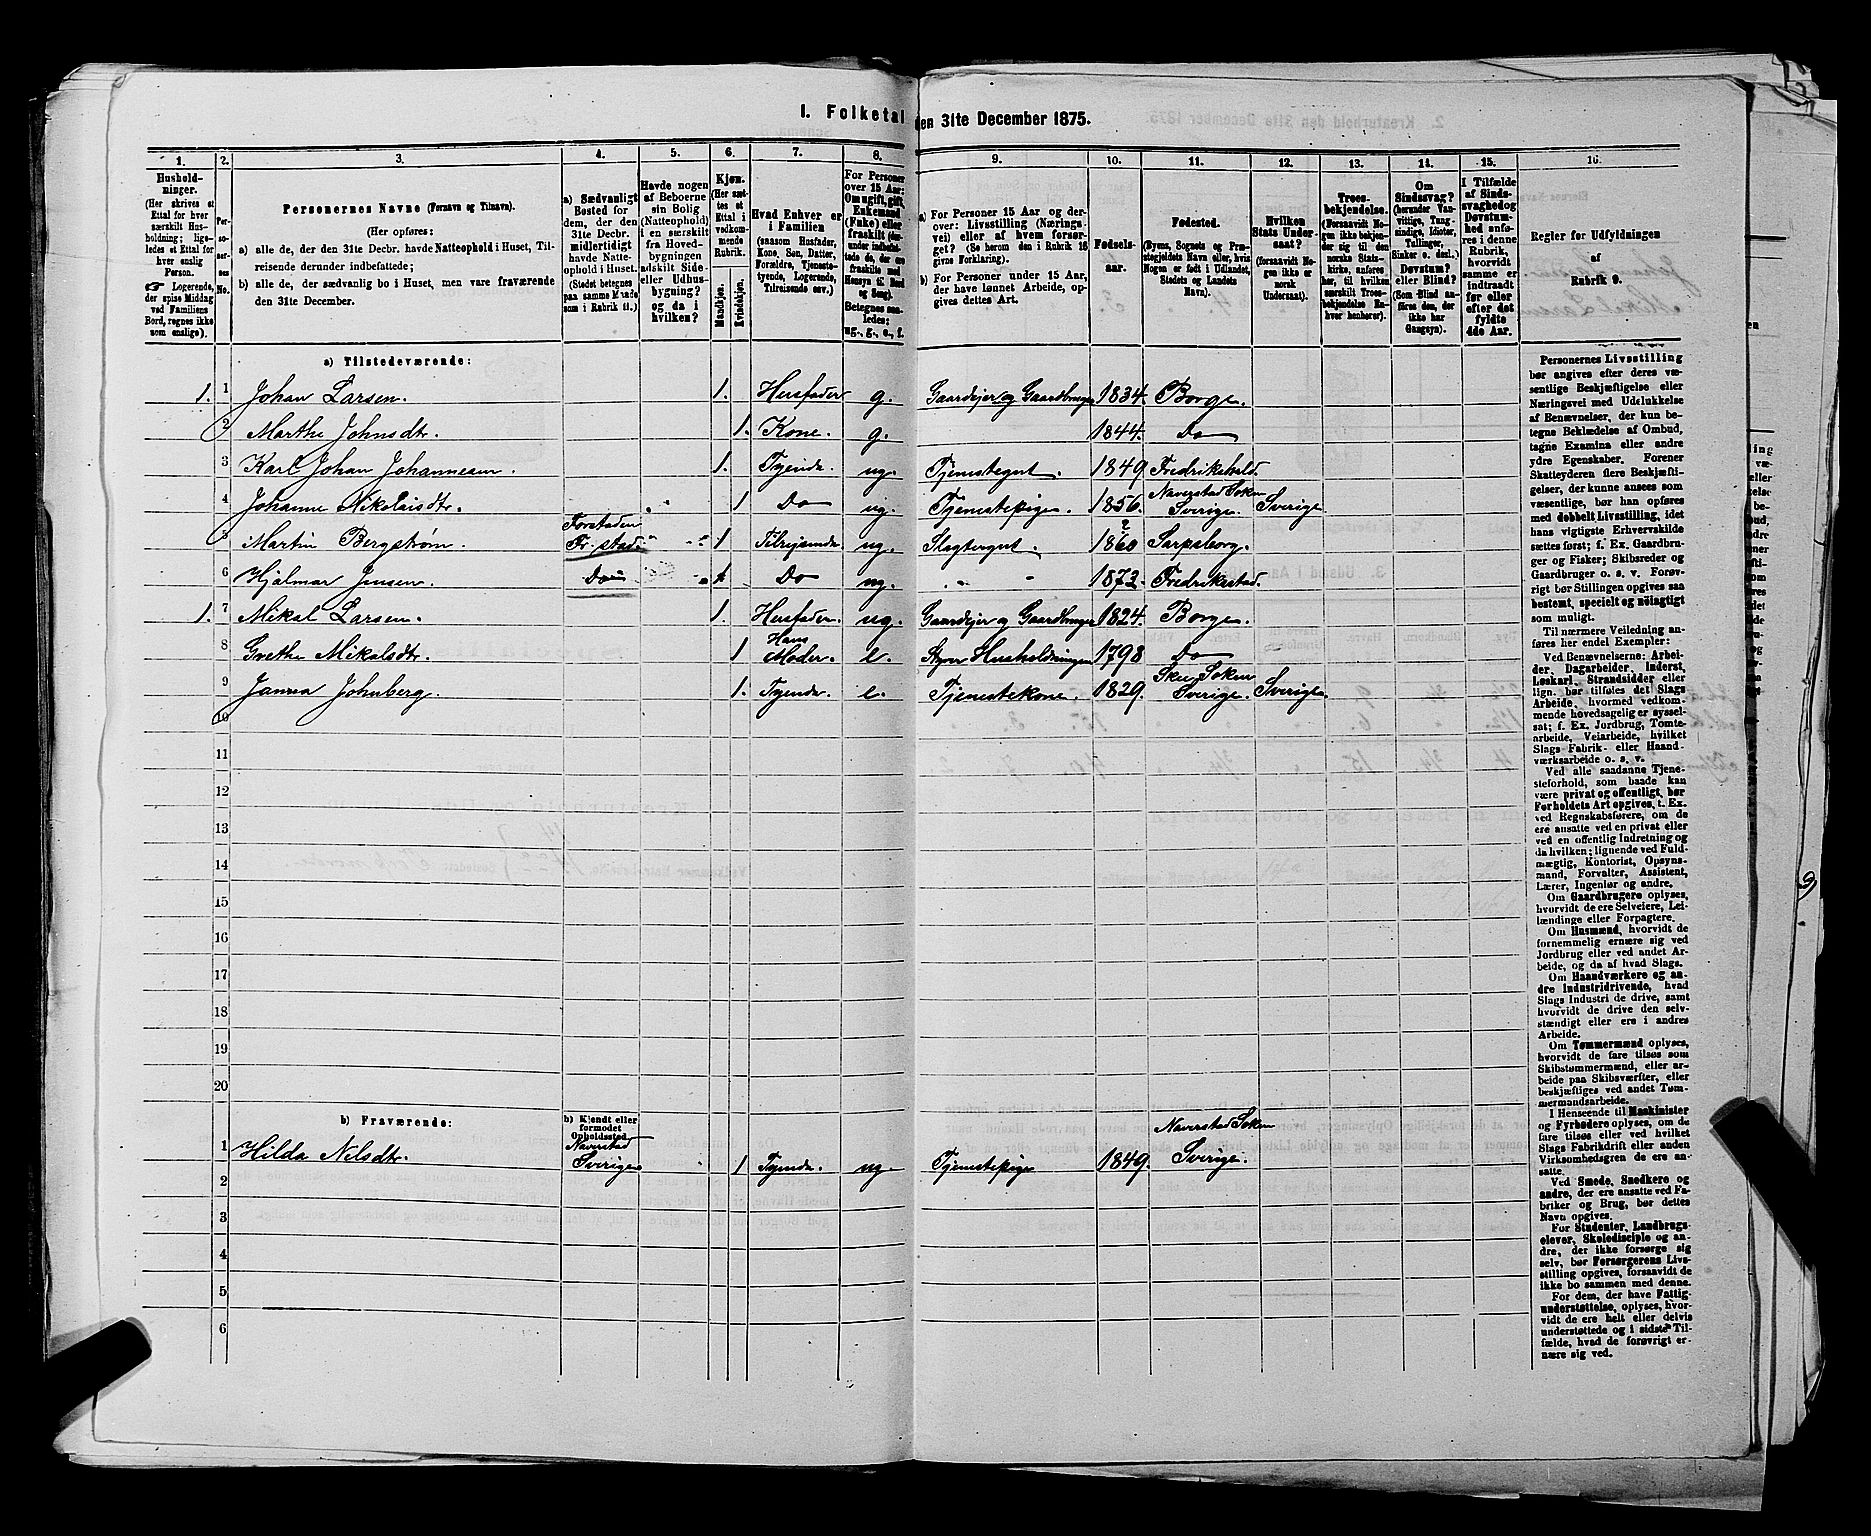 1. Folketal den 31te December 1875.
1.
2.
3.
4.
5.
6.
7.
8.
9.
10.
11.
12.
13.
14.
15.
16.
Hushold-
ninger.
(Her skrives et
Ettal for hver
særskilt Hus-
holdning; lige-
ledes et Ettal for
hver enslig
Person.
☞ Logerende,
der spise Middag
ved Familiens
Bord, regnes ikke
som enslige).
Per-
so-
ner-
nes
No.
Personernes Navne (Fornavn og Tilnavn).
(Her opføres:
a) alle de, der den 31te Decbr. havde Natteophold i Huset, Til-
reisende derunder indbefattede;
b) alle de, der sædvanlig bo i Huset, men vare fraværende
den 31te December.
a) Sædvanligt
Bosted for
dem, der den
31te Decbr.
midlertidigt
havde Natte-
ophold i Huset.
(Stedet betegnes
paa samme Maade
som i Rubrik 11.)
Havde nogen
af Beboerne
sin Bolig
(Natteophold)
i en særskilt
fra Hoved-
bygningen
adskilt Side-
eller Udhus-
bygning?
og da i
hvilken?
Kjøn.
(Her sæt-
tes et
Ettal i
vedkom-
mende
Rubrik.
Mandkjøn.
Kvindekjøn.
Hvad Enhver er
i Familien
(saasom Husfader,
Kone, Søn, Datter,
Forældre, Tjeneste-
tyende, Logerende,
Tilreisende osv.)
For Personer
over 15 Aar:
Om ugift, gift,
Enkemand
(Enke) eller
fraskilt (der-
under indbefat-
tede de, der ere
fraskilte med
Hensyn til Bord
og Seng).
Betegnes saa-
ledes:
ug., g., e., f.
a) For Personer 15 Aar og der-
over: Livsstilling (Nærings-
vei) eller af hvem forsør-
get? (Se herom den i Rubrik 16
givne Forklaring).
b) For Personer under 15 Aar,
der have lønnet Arbeide, op-
gives dettes Art.
Fødsels-
aar.
Fødested.
(Byens, Sognets og Præ-
stegjeldets Navn eller, hvis
Nogen er født i Udlandet,
Stedets og Landets
Navn).
Hvilken
Stats Under-
saat?
(forsaavidt No-
gen ikke er
norsk
Undersaat).
Troes-
bekjendelse.
(Forsaavidt No-
gen ikke bekjen-
der sig til den
norske Stats-
kirke, anføres
her, til hvilken
særskilt Troes-
bekjendelse En-
hver henhører).
Om
Sindssvag?
(herunder Van-
vittige, Tung-
sindige, Idioter,
Tullinger,
Sinker o. desl.)
Døvstum?
eller Blind?
(Som Blind an-
føres den, der
ikke har
Gangsyn).
I Tilfælde
af Sinds-
svaghed og
Døvstum-
hed anfø-
res i denne
Rubrik,
hvorvidt
samme er
indtraadt
før eller
efter det
fyldte
4de Aar.
Regler for Udfyldningen
af
Rubrik 9.
a) Tilstedeværende:
1. 1 Johan Larsen. 1. Husfader g. Gaardejer og Gaardbruger 1834. Borge.
2 Marthe Johnsdtr. 1. Kone. g. 1844. Do
3 Karl Johan Johannesen. 1. Tyende. ug. Tjenestegut. 1849. Fredrikshald.
4 Johanne Nikolaisdtr. 1 Do ug. Tjenestepige. 1856. Naverstad Soken Sverige. Sverige
5 Martin Bergstrøm. Forstaden Fr.stad 1 Tilrejsende ug. Slagtergut. 1860 Sarpsborg.
6 Hjalmar Jensen. Do 1 Do ug. 1872. Fredrikstad.
1. 7 Mikal Larsen. 1. Husfader. ug. Gaardejer og Gaardbruger 1824. Borge.
8 Grethe Mikalsdtr. 1 Hans Moder. e. Styrer Husholdningen 1798 Do
9 Jannea Johnberg. 1. Tyende. e. Tjenestekone. 1829. Skee Soken Sverige. Sverige.
10
11
12
13
14
15
16
17
18
19
20
b) Fraværende:
b) Kjendt eller
formodet
Opholdssted.
1 Hilda Nilsdtr. Naverstad Sverige 1 Tyende. ug. Tjenestepige 1849. Naverstad Soken Sverige.
2
3
4
5
6
Personernes Livsstilling
bør angives efter deres væ-
sentlige Beskjæftigelse eller
Næringsvei med Udelukkelse
af Benævnelser, der kun be-
tegne Beklædelse af Ombud,
tagne Examina eller andre
ydre Egenskaber. Forener
Skatteyderen flere Beskjæfti-
gelser, der kunne ansees som
væsentlige, bør han opføres
med dobbelt Livsstilling, idet
hans vigtigste Erhvervskilde
sættes først; f. Ex. Gaardbru-
ger og Fisker; Skibsreder og
Gaardbruger o. s. v. Forøv-
rigt bør Stillingen opgives saa
bestemt, specielt og nøiagtigt
som muligt.
Til nærmere Veiledning an-
føres her endel Exempler:
Ved Benævnelserne: Arbei-
der, Dagarbeider, Inderst,
Løskarl, Strandsidder eller
lign. bør tilføies det Slags
Arbeide, hvormed vedkom-
mende hovedsagelig er syssel-
sat; f. Ex. Jordbrug, Tomte-
arbeide, Veiarbeide, hvilket
Slags Fabrik- eller Haand-
værksarbeide o. s. v.
Ved alle saadanne Tjene-
steforhold, som baade kan
være privat og offentligt, bør
Forholdets Art opgives, t. Ex.
ved Regnskabsførere, om de
ere ansatte ved en privat eller
en offentlig Indretning og
da hvilken; lignende ved Fuld-
mægtig, Kontorist, Opsyns-
mand, Forvalter, Assistent,
Lærer, Ingeniør og andre.
Om Gaardbrugere oplyses,
hvorvidt de ere Selveiere, Lei-
lændinge eller Forpagtere.
Om Husmænd, hvorvidt de
fornemmelig ernære sig ved
Jordbrug eller ved andet Ar-
beide, og da af hvad Slags.
Om Haandværkere og an-
dre Industridrivende, hvad
Slags Industri de drive, samt
hvorvidt de drive den selv-
stændigt eller ere i andres
Arbeide.
Om Tømmermænd oplyses,
hvorvidt de fare tilsøs som
Skibstømmermænd, eller ar-
beide paa Skibsværfter, eller
beskjæftiges ved andet Tøm-
mermandsarbeide.
I Henseende til Maskinister
og Fyrbødere oplyses, om de
fare tilsøs eller ved hvilket
Slags Fabrikdrift eller anden
Virksomhedsgren de ere an-
satte.
Ved Smede, Snedkere og
andre, der ere ansatte ved Fa-
briker og Brug, bør dettes
Navn opgives.
For Studenter, Landbrugs-
elever, Skoledisciple og an-
dre, der ikke forsørge sig
selv, bør Forsørgerens Livs-
stilling opgives, forsaavidt de
ikke bo sammen med denne.
For dem, der have Fattig-
understøttelse, oplyses, hvor-
vidt de ere helt eller delvis
understøttede og i sidste Til-
fælde, hvad de forøvrigt er-
nære sig ved.